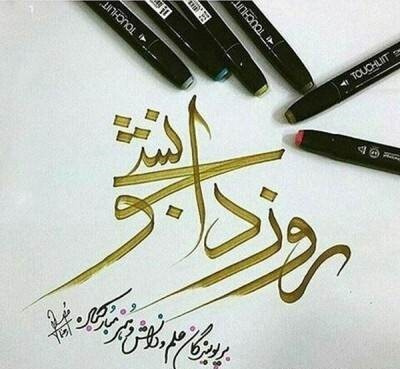 TOUCHLIIT
TOUCHLIIT
TOUCHLIIT
روز دانشجو
بر پویندگان علم و دانش و هنر مبارکباد